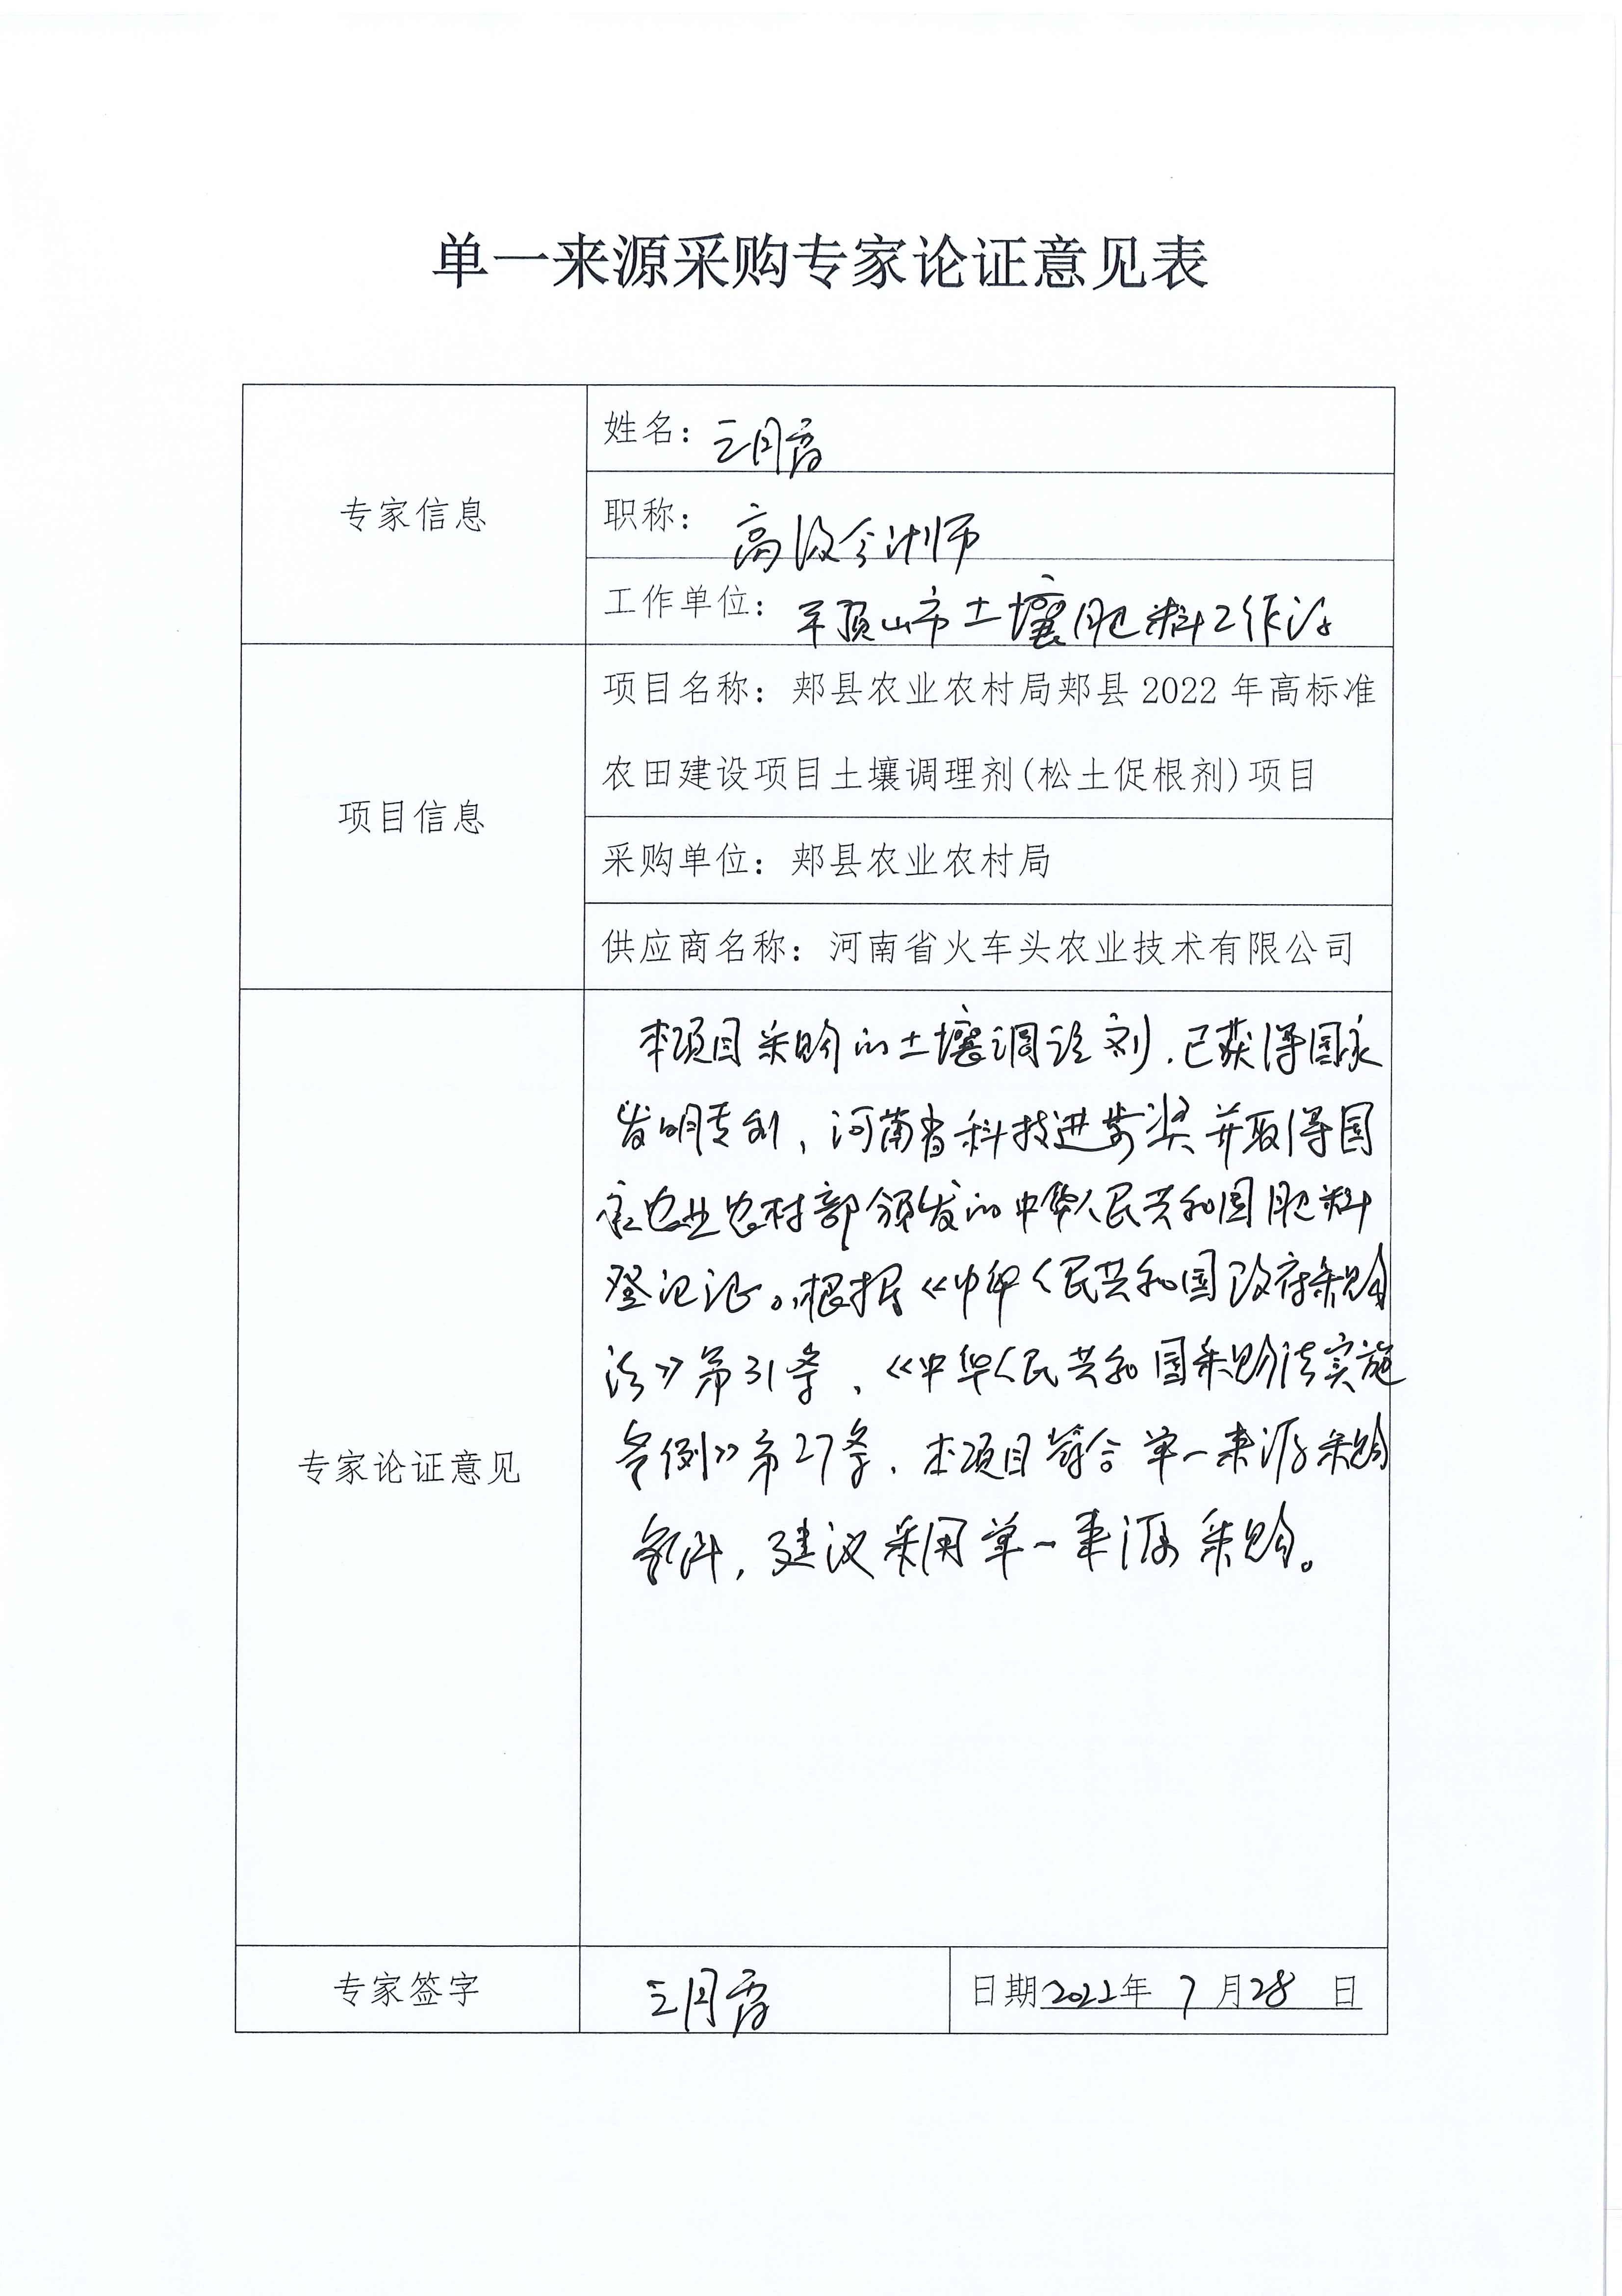 单一来源采购专家论证意见表
专家信息
姓名：王月霞
职称：高级会计师
工作单位：平顶山市土壤肥料工作站
项目信息
项目名称：郏县农业农村局郏县 2022 年高标准
农田建设项目土壤调理剂(松土促根剂)项目
采购单位：郏县农业农村局
供应商名称：河南省火车头农业技术有限公司
专家论证意见
本项目采购的土壤调理剂，已获得国家
发明专利，河南省科技进步奖并取得国
家农业农村部颁发的中华人民共和国肥料
登记证。根据《中华人民共和国政府采购
法》第31条、《中华人民共和国采购法实施
条例》第27条，本项目符合单一来源采购
条件，建议采用单一来源采购。
专家签字
王月霞
日期2022年 7 月28 日